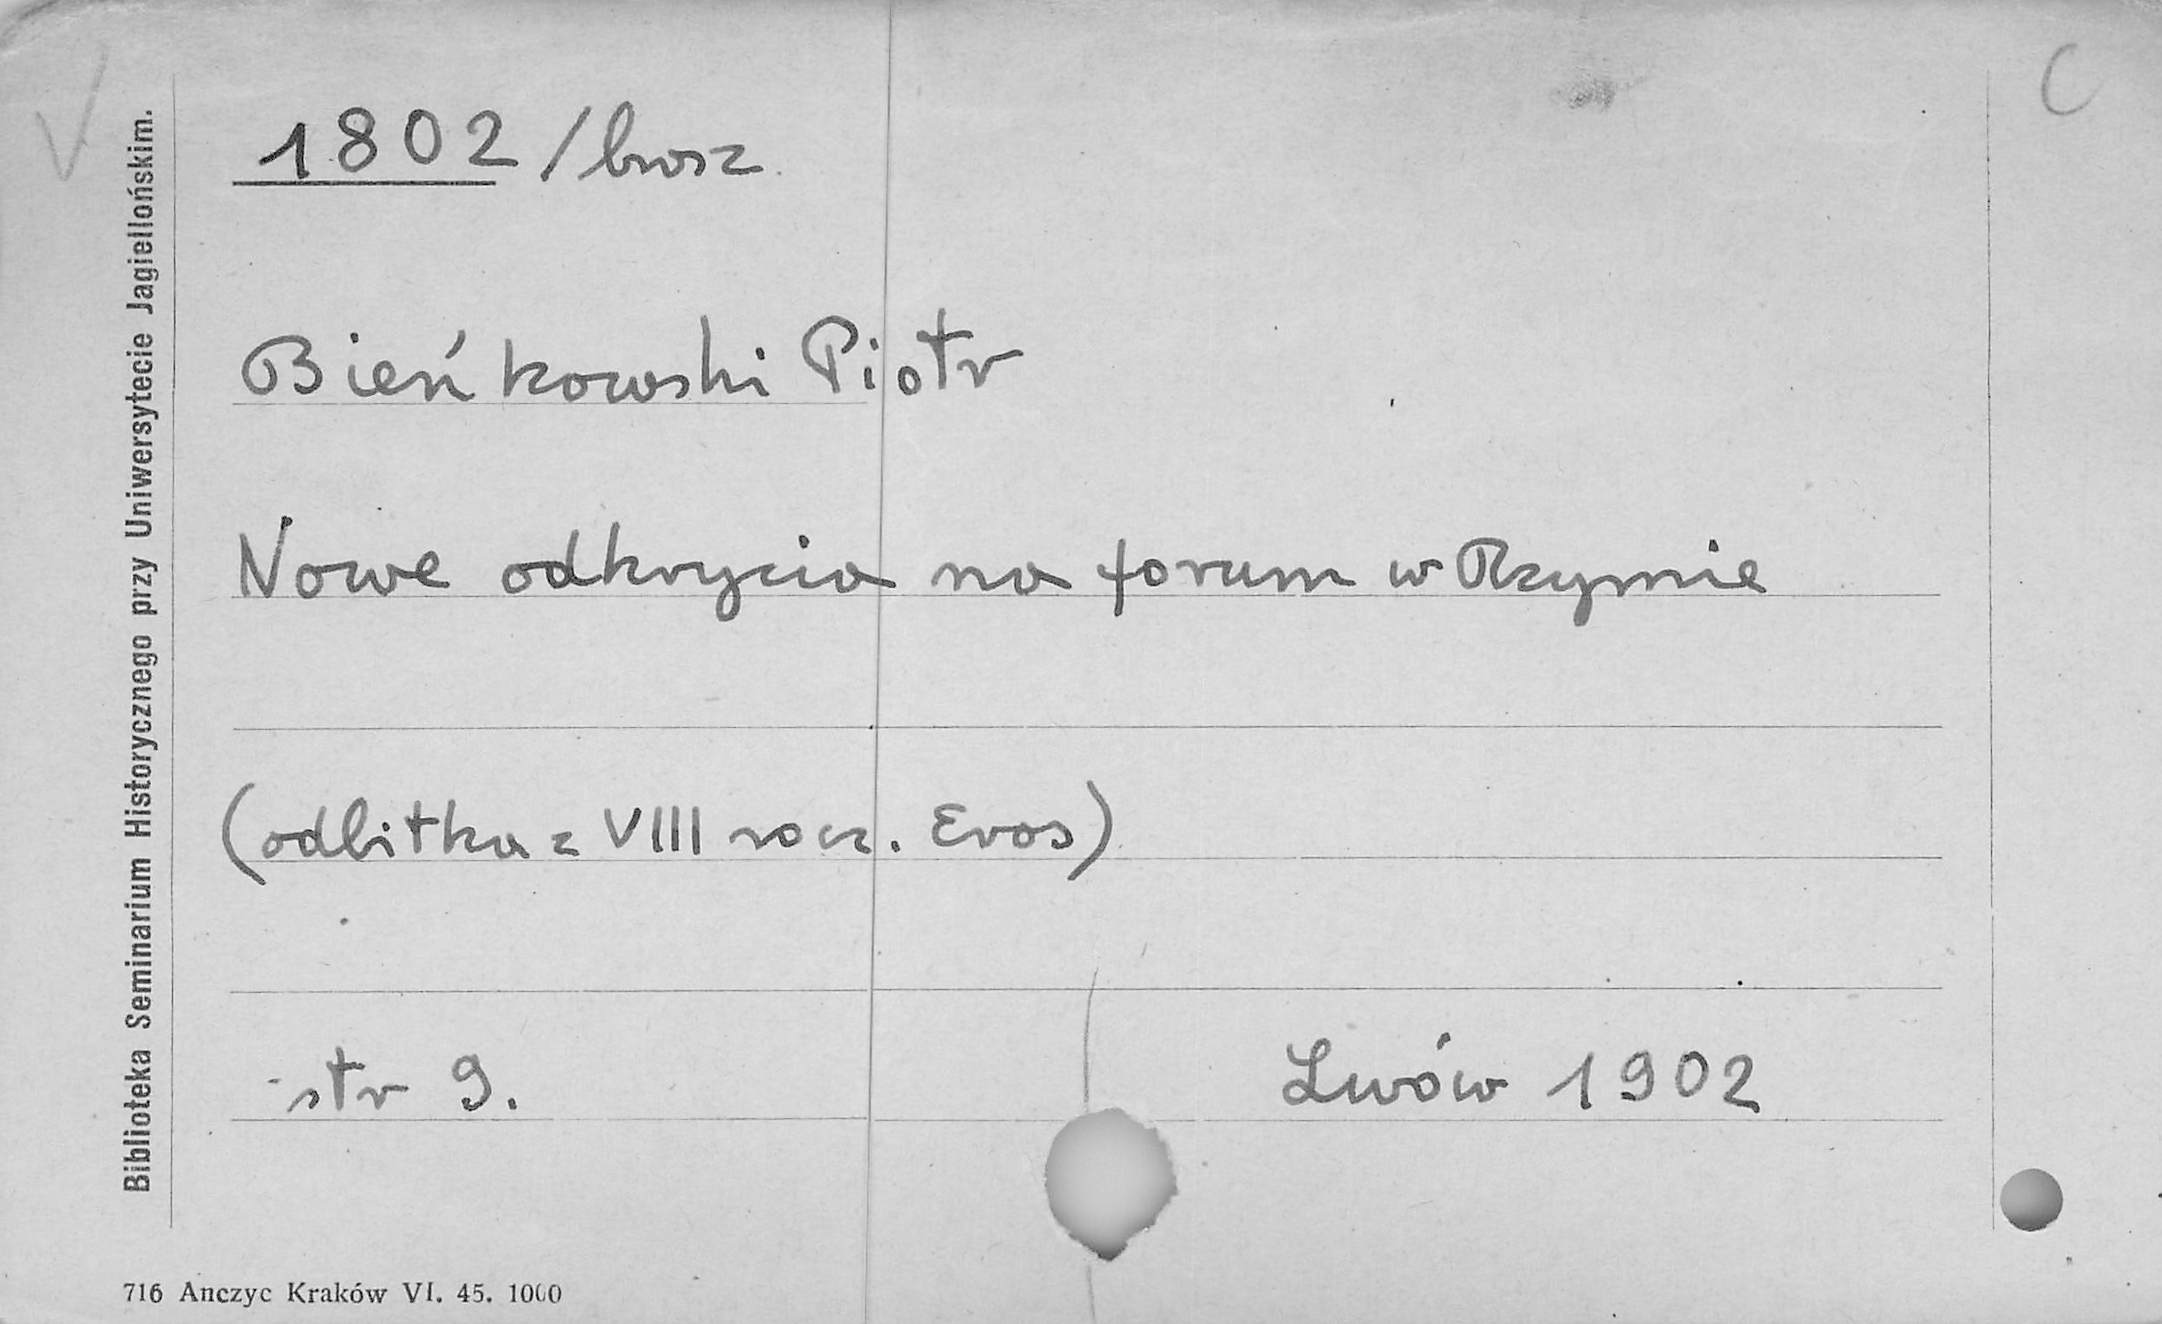 V
C
1802/brosz.
Bieńkowski Piotr
Nowe odkrycia na forum w Rzymie
(odbitka z VIII rocz. Eros)
str 9.
Lwów 1902
Biblioteka Seminarium Historycznego przy Uniwersytecie Jagiellońskim.
716 Anczyc Kraków VI. 45. 1000